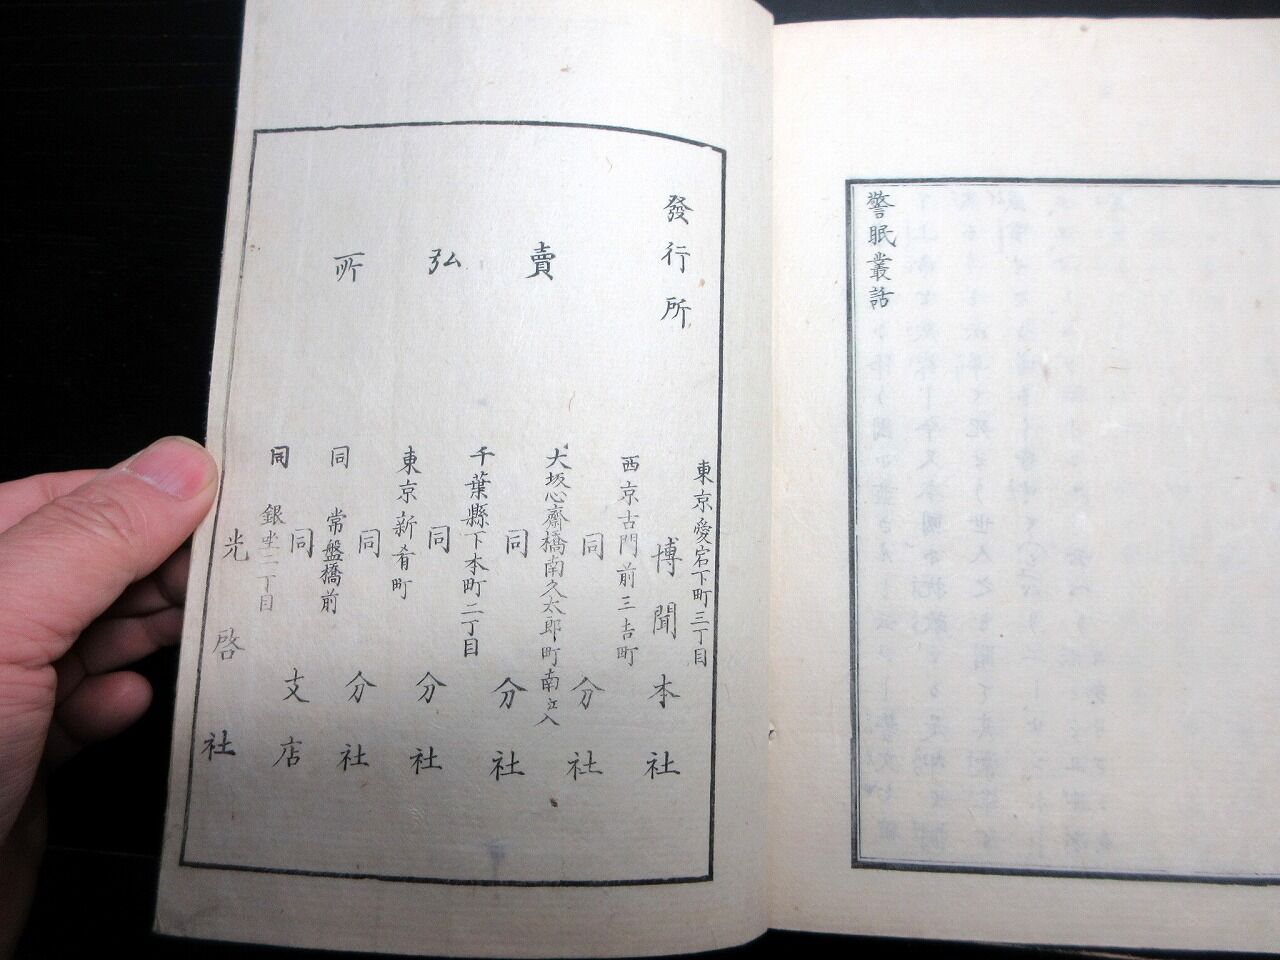 警眠叢話
發行所
東京愛宕下町三丁目
博聞本社
賣弘所
西京古門前三吉町
同分社
大坂心齋橋南久太郎町南江入
同分社
千葉縣下本町二丁目
同分社
東京新肴町
同分社
同常盤橋前
同支店
同銀坐二丁目
光啓社